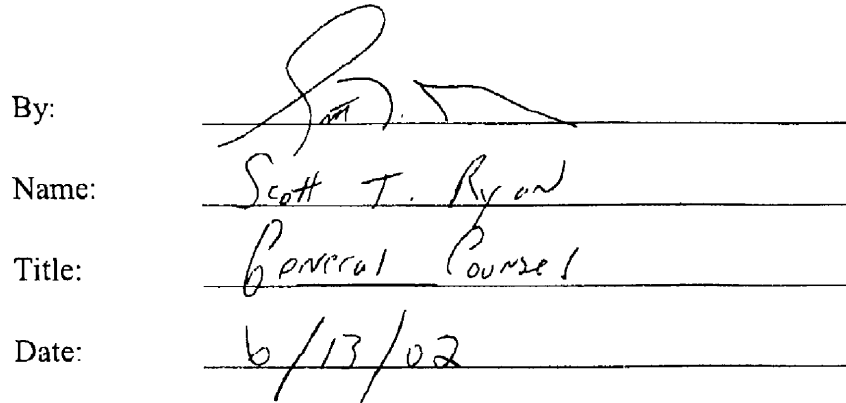 By:
Name: Scott T. Ryan
Title: General Counsel
Date: 6/13/02